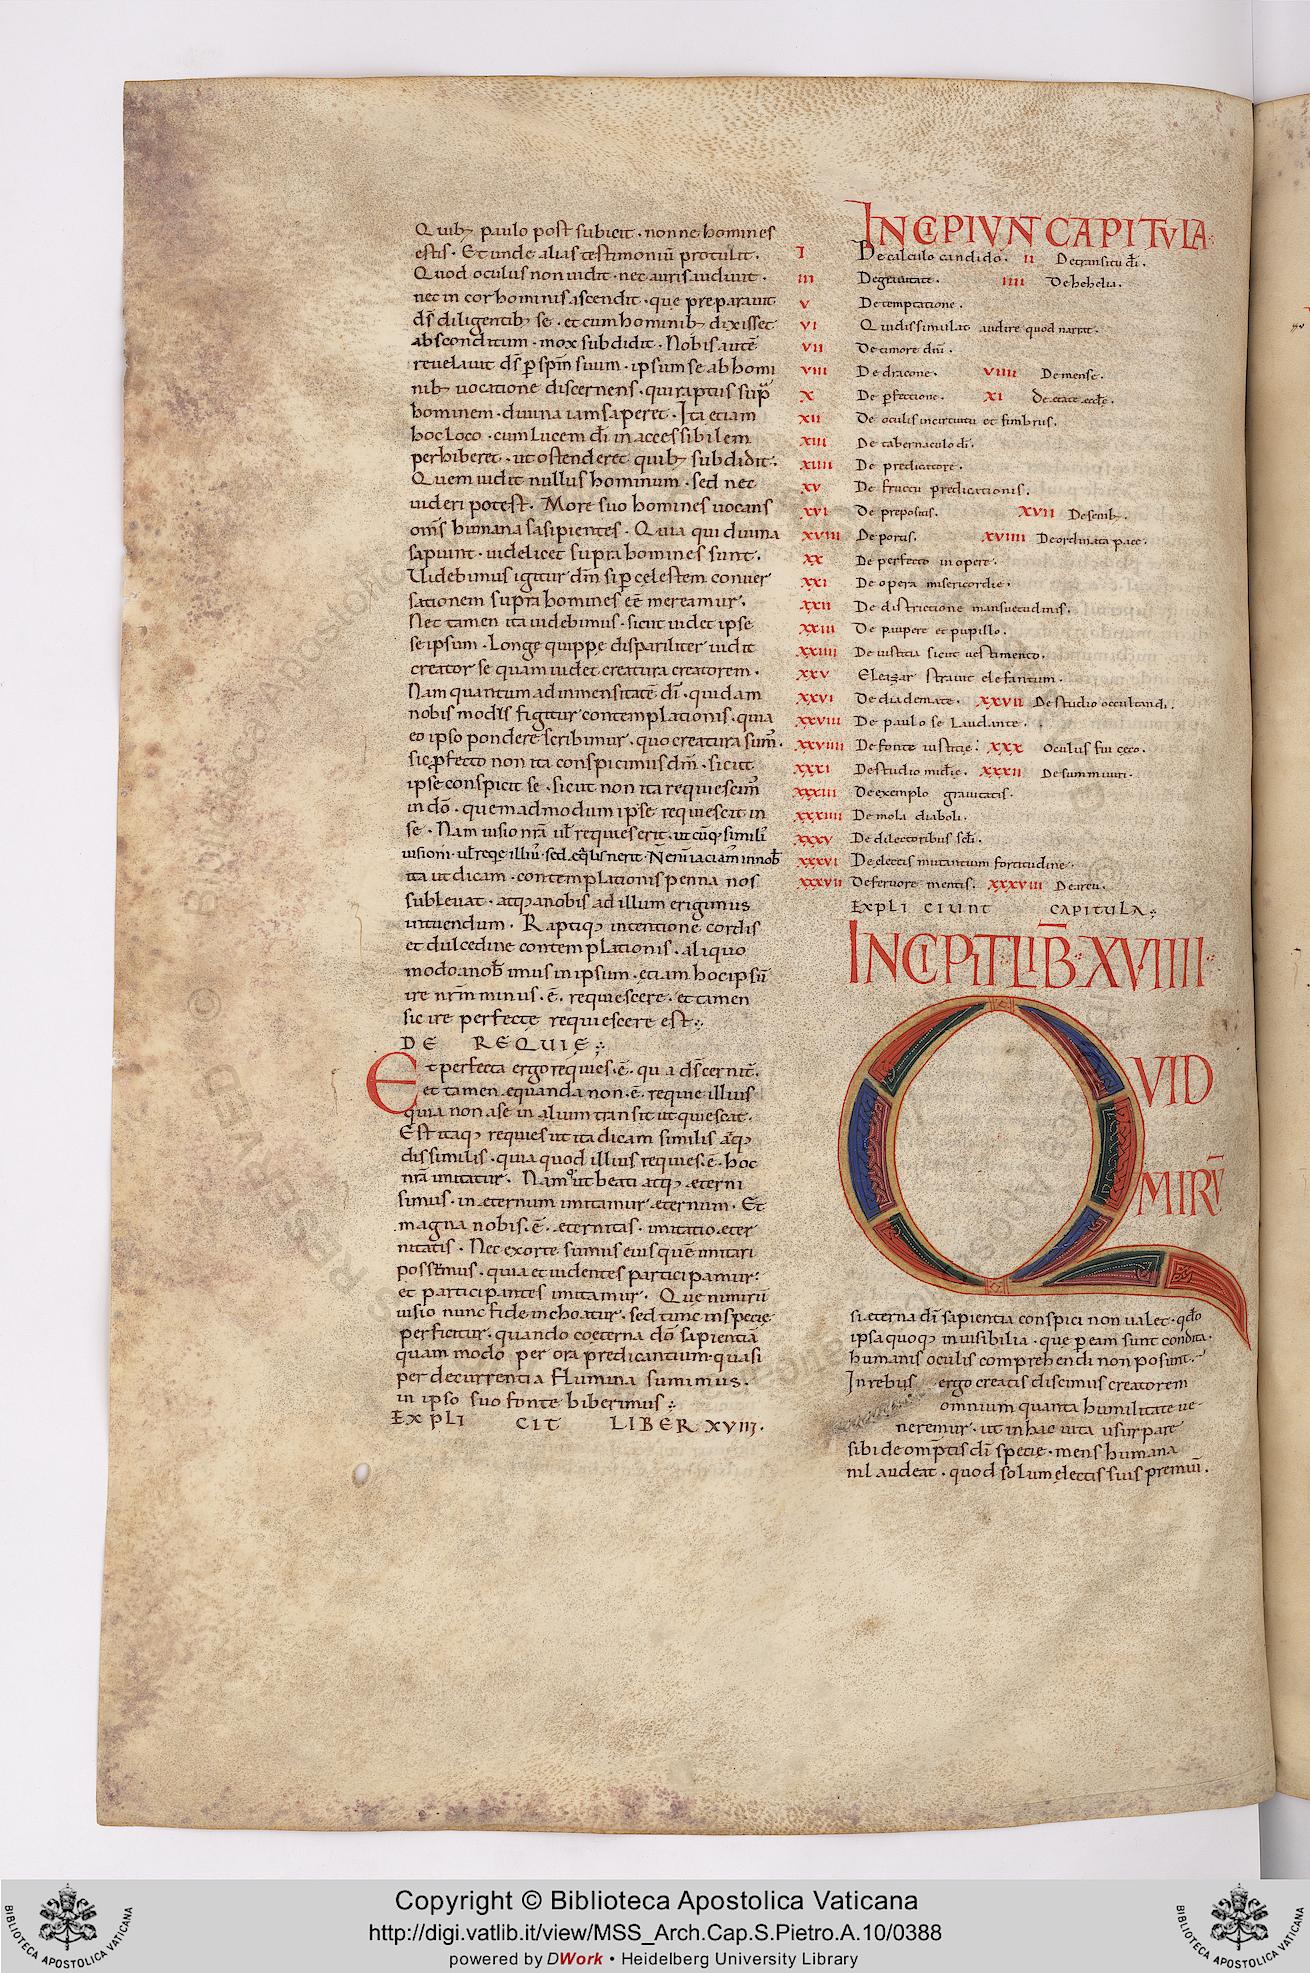 Quib; paulo post subicit · nonne homines
estis · Et unde alias testimoniū protulit ·
Quod oculus non uidit · nec auris audiuit ·
nec in cor hominis ascendit · quę preparauit
ds̄ diligentib; se · et cum hominib; dixisset
absconditum · mox subdidit · Nobis autē
reuelauit ds̄ p̄ spm̄ suum · ipsum se ab homi
nib; uocatione discernens · qui raptus sup̄
hominem · diuina iam saperet · Ita etiam
hoc loco · cum lucem dī inaccessibilem
perhiberet · ut ostenderet quib; subdidit ·
Quem uidit nullus hominum · sed nec
uideri potest · More suo homines uocans
om̄s humana sapientes · Quia qui diuina
sapiunt · uidelicet supra homines sunt ·
Uidebimus igitur dm̄ si p̄ celestem conuer
sationem supra homines eē mereamur ·
Nec tamen ita uidebimus · sicut uidet ipse
se ipsum · Longe quippe dispariliter uidit
creator se quam uidet creatura creatorem ·
Nam quantum ad inmensitatē dī · quidam
nobis modus figitur contemplationis · quia
eo ipso pondere scribimur · quo creatura sum̄ ·
sic p̄fecto non ita conspicimus dm̄ · sicut
ipse conspicit se · sicut non ita requiescim̄
in dō · quemadmodum ipse requiescit in
se · Nam uisio nr̄a ul̄ requies erit · ut cūq; simil̄
uisioni · ul̄ reqe illiu᷒ · sed eq̄lis n erit · N̄ enī iaceam᷒ in nob̄
ita ut dicam · contemplationis penna nos
subleuat · atq; a nobis ad illum erigimus
intuendum · Raptiq; intentione cordis
et dulcedine contemplationis · aliquo
modo a nob̄ imus in ipsum · et iam hoc ipsū
ire nr̄m minus · ē · requiescere · et tamen
sic ire perfecte requiescere est ·
DE REQUIE
Et perfecta ergo requies · ē · quia ds̄ cernit̄ ·
et tamen equanda non · ē · requie illius
quia non a se in alium transit ut quiescat ·
Est itaq; requies ut ita dicam similis atq;
dissimilis · quia quod illius requies · ē · hoc
nr̄a imitatur · Namq; ut beati atq; ęterni
simus · in ęternum imitamur ęternum · Et
magna nobis · ē · ęternitas · imitatio ęter
nitatis · Nec exorte sumus eius quē imitari
possēmus · quia et uidentes participamur ·
et participantes imitamur · Que nimirū
uisio nunc fide inchoatur · sed tunc in specie
perficitur · quando coęterna dō sapientiā
quam modo per ora predicantium · quasi
per decurrentia flumina sumimus ·
in ipso suo fonte biberimus
EXPLICIT LIBER XVIII.
INCIPIVNT CAPITVLA
I De calculo candido · II De transitu dī ·
III De grauitate · IIII De hebelia ·
V De temptatione ·
VI Qui dissimulat audire quod narrat ·
VII De timore dni ·
VIII De dracone · VIIII De mense ·
X De p̄fectione · XI De etate eccłę ·
XII De oculis in circuitu et fimbrus ·
XIII De tabernaculo dī ·
XIIII De predicatore ·
XV De fructu predicationis ·
XVI De prepositis · XVII De senib; ·
XVIII De portis · XVIIII De ordinata pace ·
XX De perfecto in opere ·
XXI De opera misericordie ·
XXII De districtione mansuetudinis ·
XXIII De paupere et pupillo ·
XXIIII De iustitia sicut uestimento ·
XXV Eleazar strauit elefantum ·
XXVI De diademate · XXVII De studio occultandi ·
XXVIII De paulo se laudante ·
XXVIIII De fonte iustitie · XXX Oculus fui ceco ·
XXXI De studio mulie · XXXII De summ uiri ·
XXXIII De exemplo grauitatis ·
XXXIIII De mola diaboli ·
XXXV De dilectoribus scl̄i ·
XXXVI De electis mutantium fortitudine ·
XXXVII De feruore mentis · XXXVIII De arcu ·
EXPLICIUNT CAPITULA
INCIPIT LIB̄ XVIIII
QVID
MIRV̄
si ęterna dī sapientia conspici non ualet · qdo
ipsa quoq; inuisibilia · quę p̄ eam sunt condita ·
humanis oculis comprehendi non posunt ·
In rebus ergo creatis discimus creatorem
omnium quanta humilitate ue
neremur · ut in hac uita usurpare
sibi de omp̄tis dī specie · mens humana
nil audeat · quod solum electis suis premiū ·
Copyright © Biblioteca Apostolica Vaticana
http://digi.vatlib.it/view/MSS_Arch.Cap.S.Pietro.A.10/0388
powered by DWork • Heidelberg University Library
BIBLIOTECA APOSTOLICA VATICANA
BIBLIOTECA APOSTOLICA VATICANA